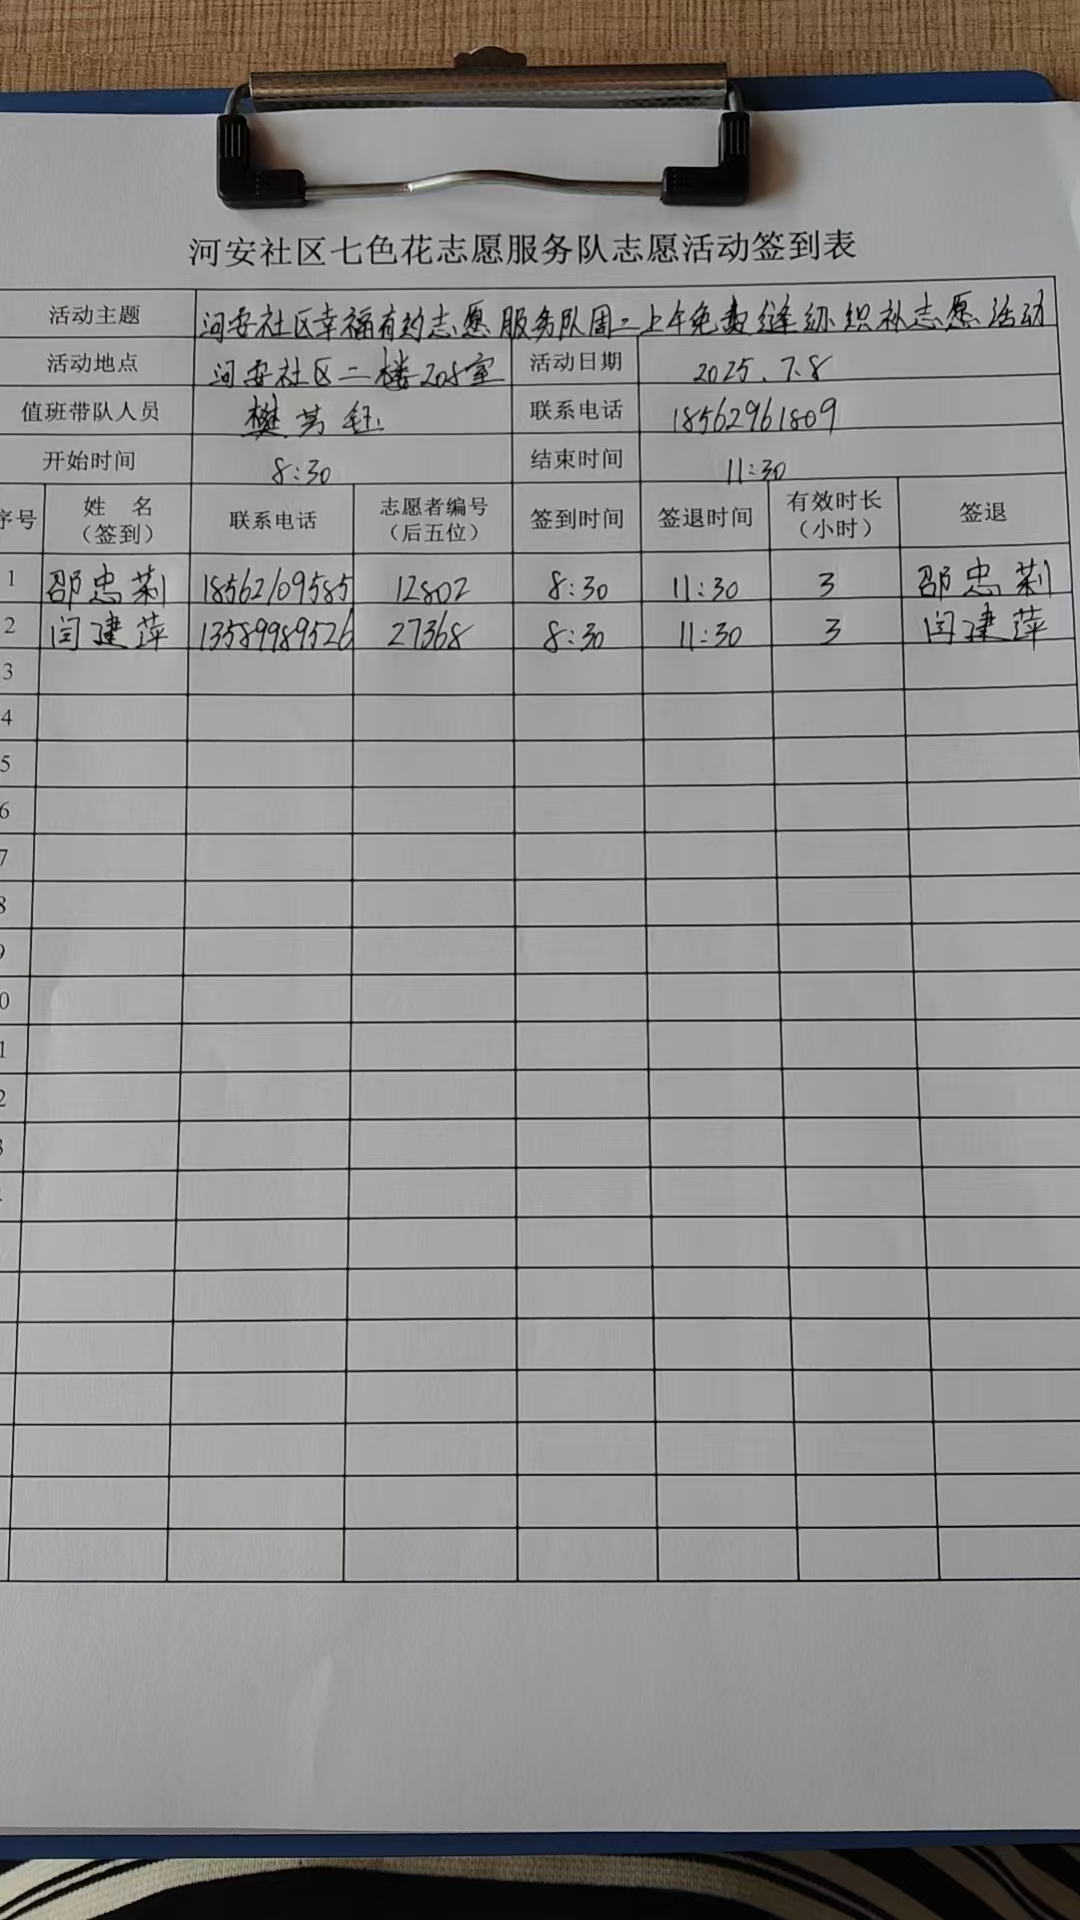 河安社区七色花志愿服务队志愿活动签到表
活动主题 河安社区幸福有约志愿服务队周二上午免费缝纫织补志愿活动
活动地点 河安社区二楼208室 活动日期 2025.7.8
值班带队人员 樊芳钰 联系电话 18562961809
开始时间 8:30 结束时间 11:30
序号 姓 名 联系电话 志愿者编号 签到时间 签退时间 有效时长 签退
（签到） （后五位） （小时）
1 邵忠莉 18562109585 12802 8:30 11:30 3 邵忠莉
2 闫建萍 13589989526 27368 8:30 11:30 3 闫建萍
3
4
5
6
7
8
9
0
1
2
3